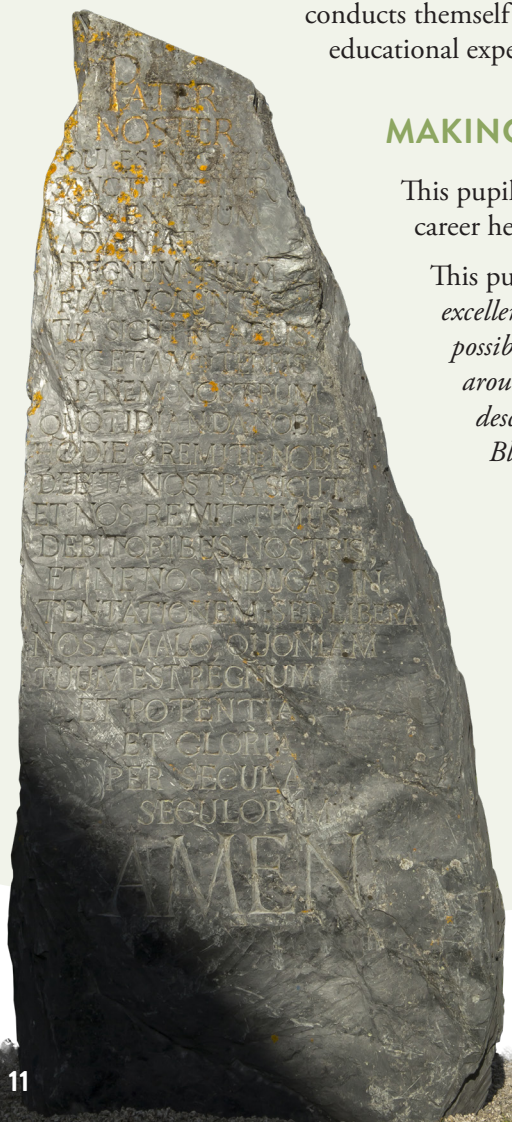 conducts themself
educational expe
MAKING
This pupil
career he
This pu
excellen
possib
arou
desc
Bl
PATER
NOSTER
QUI ES IN
NOMEN TUUM
ADVENIAT
REGNUM TUUM
FIAT
SICUT
SIC ET
PANEM NOSTRUM
QUOTIDI DA NOBIS
ODIE & REMITTE NOBIS
DEBITA NOSTRA SICUT
ET NOS REMITTIMUS
DEBITORIBUS NOSTRIS
ET NE NOS INDUCAS IN
TENTATIONEM SED LIBERA
NOS A MALO QUONIAM
TUUM EST REGNUM
ET POTENTIA
ET GLORIA
PER SECULA
SECULORUM
AMEN
11